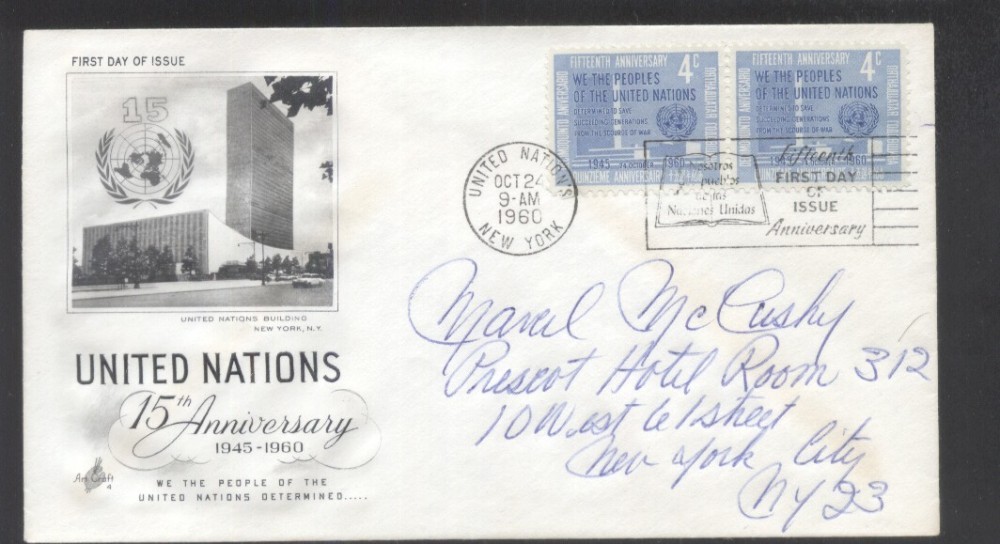 FIRST DAY OF ISSUE
15
UNITED NATIONS BUILDING
NEW YORK, N.Y.
UNITED NATIONS
15th Anniversary
1945-1960
Art Craft
WE THE PEOPLE OF THE
UNITED NATIONS DETERMINED.....
FIFTEENTH ANNIVERSARY 4c
WE THE PEOPLES
OF THE UNITED NATIONS
DETERMINED TO SAVE
SUCCEEDING GENERATIONS
FROM THE SCOURGE OF WAR
1945 24 OCTOBER 1960
QUINZIEME ANNIVERSAIRE
FIFTEENTH ANNIVERSARY 4c
WE THE PEOPLES
OF THE UNITED NATIONS
DETERMINED TO SAVE
SUCCEEDING GENERATIONS
FROM THE SCOURGE OF WAR
1960
QUINZIEME ANNIVERSAIRE
UNITED NATIONS
OCT 24
9-AM
1960
NEW YORK
Nosotros
pueblos
de las
Naciones Unidas
Fifteenth
FIRST DAY
OF
ISSUE
Anniversary
Marcel McCushy
Prescot Hotel Room 312
10 West 61 street
New York City
NY 23